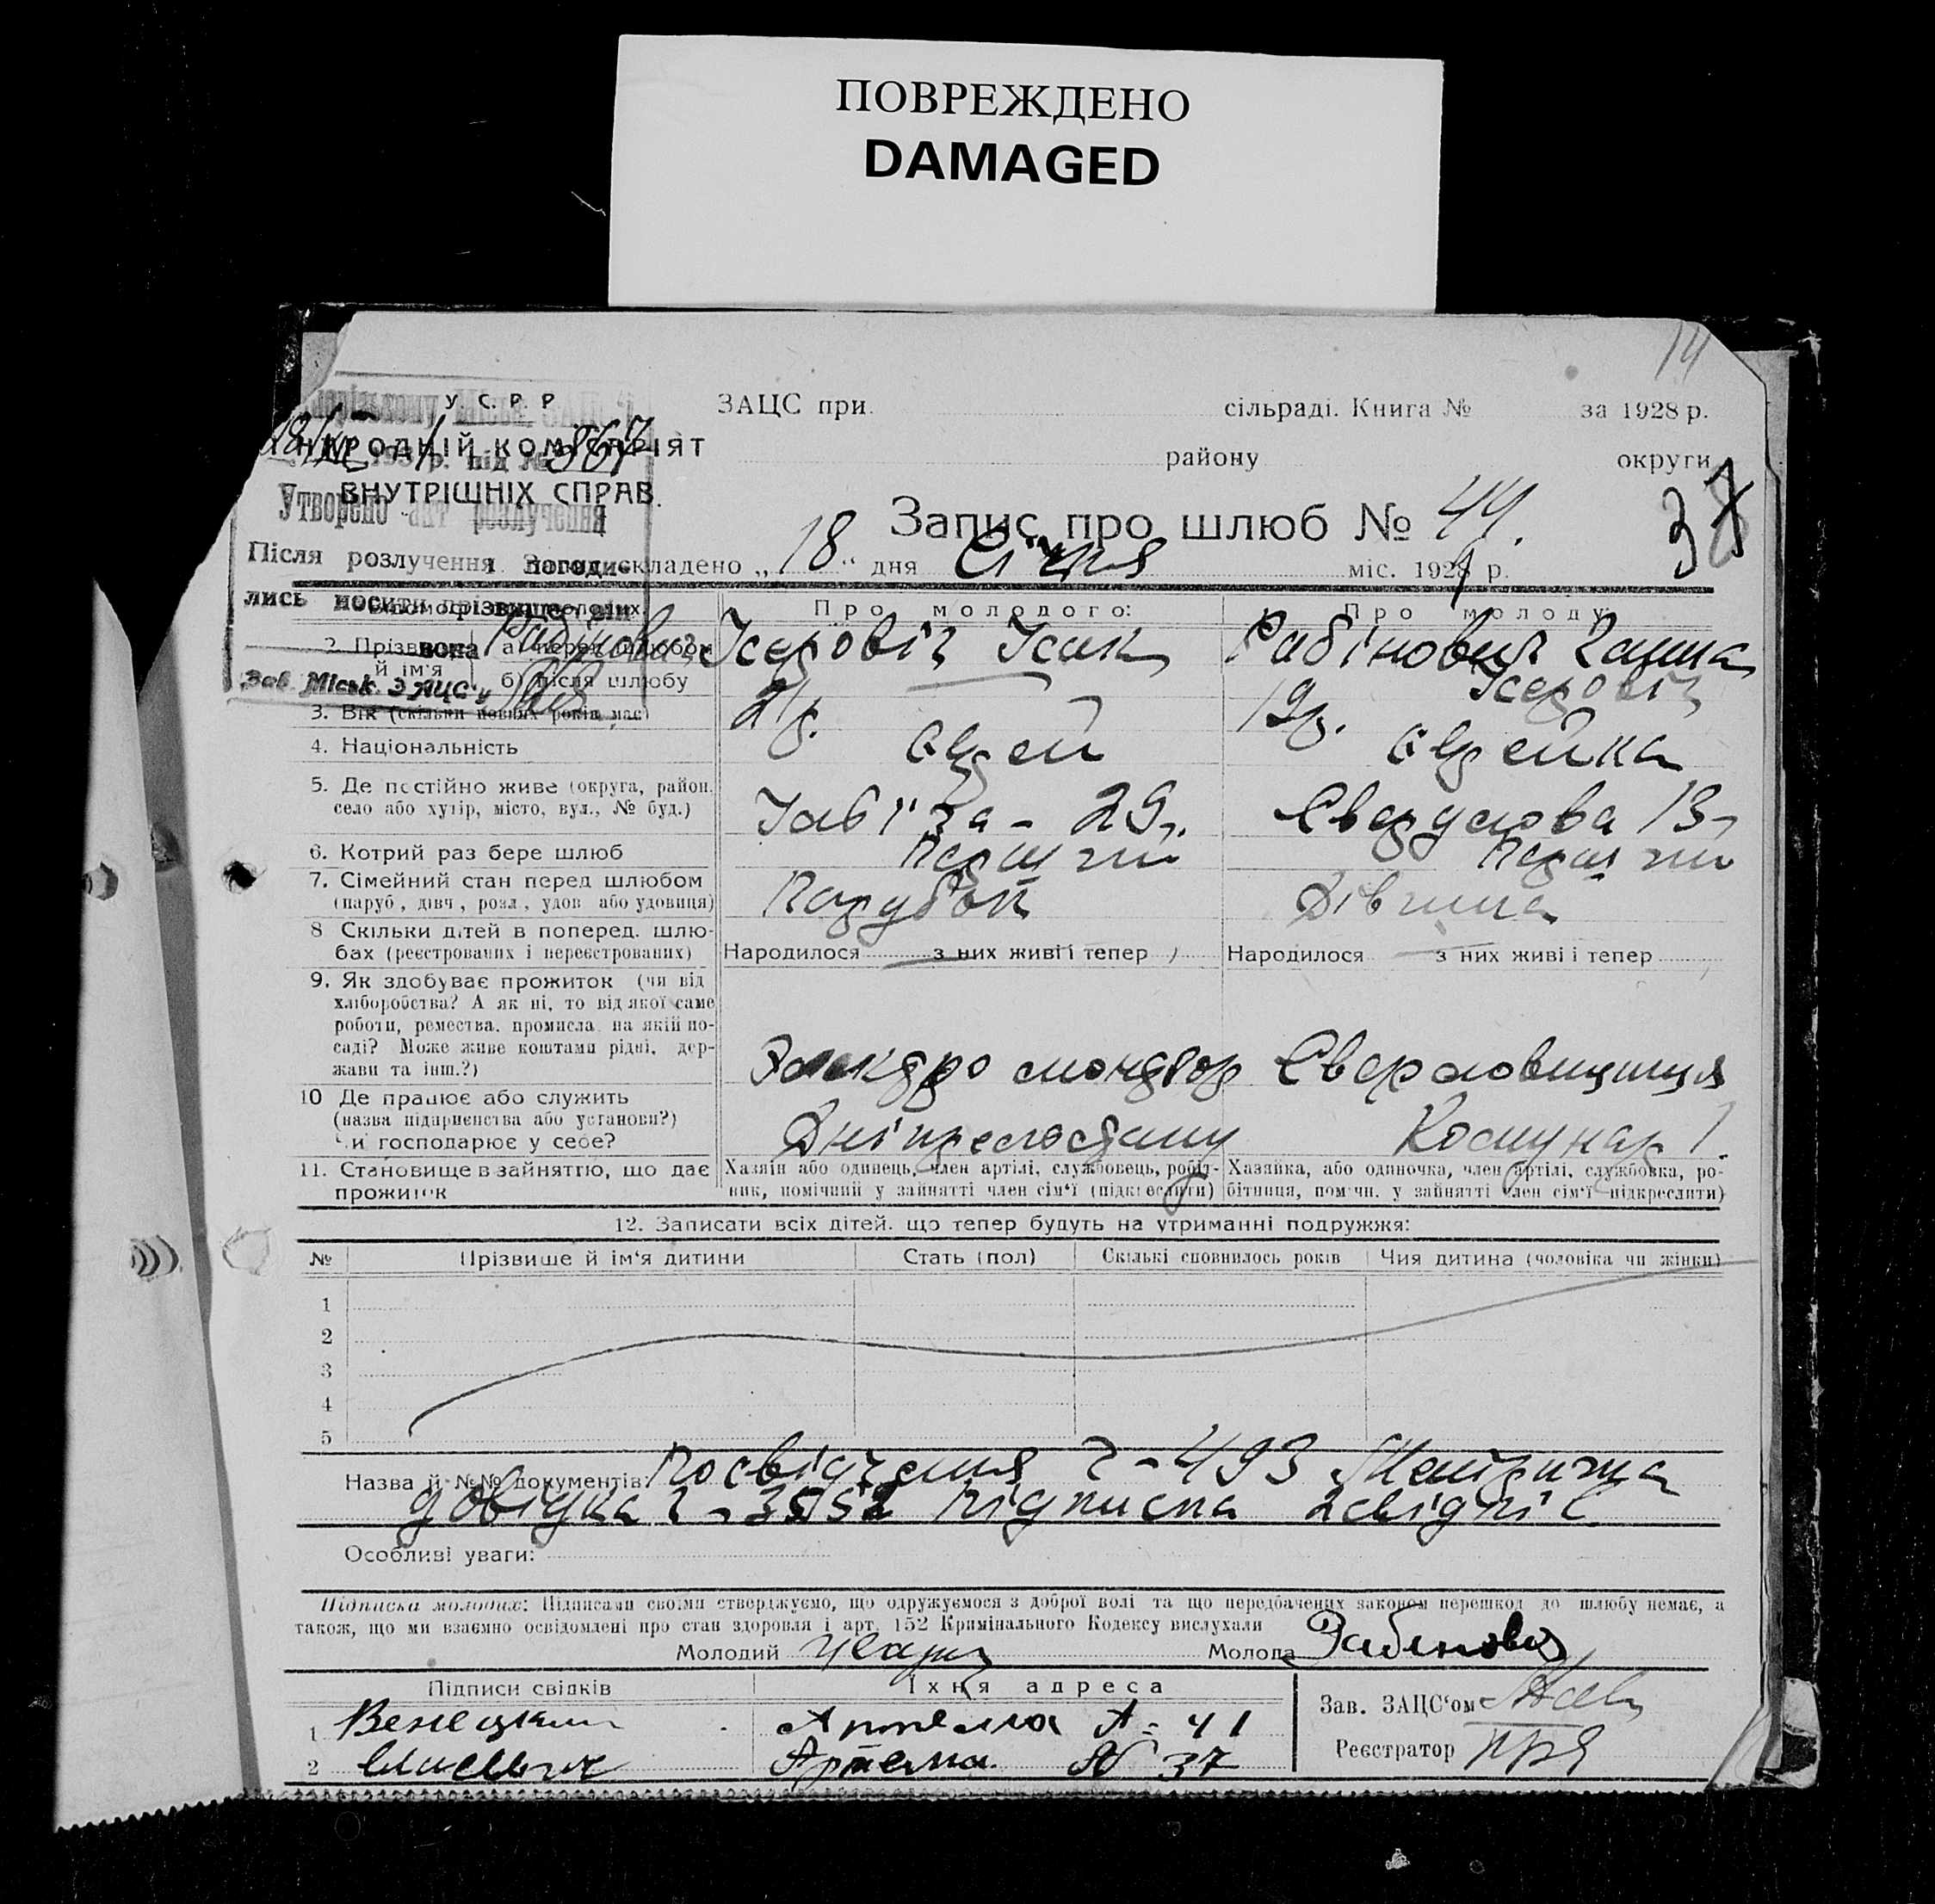 ПОВРЕЖДЕНО
DAMAGED
14
У С. Р. Р
НАРОДНІЙ КОМІСАРІЯТ
ВНУТРІШНІХ СПРАВ.
ЗАЦС при сільраді. Книга № за 1928 р.
району округи
367
Утворено акт розлучення
Запис про шлюб № 44. 37
Після розлучення погоди- складено „18“ дня Січня міс. 1928 р.
лись носити прізвище: він
вона Рабінович
Зав. Міськ. ЗАЦС'у
Про молодого: Про молоду:
2. Прізвище й ім'я а) перед шлюбом Ісерович Ісак Рабінович Ганна
б) після шлюбу Ісерович
3. Вік (скільки повних років має) 21р. 19р.
4. Національність єврей єврейка
5. Де постійно живе (округа, район,
село або хутір, місто, вул., № буд.) 29 Свердлова 13
6. Котрий раз бере шлюб перший перший
7. Сімейний стан перед шлюбом
(паруб., дівч., розл., удов. або удовиця) Парубок Дівчина
8 Скільки дітей в поперед. шлю-
бах (реєстрованих і нереєстрованих) Народилося з них живі і тепер Народилося з них живі і тепер
9. Як здобуває прожиток (чи від
хліборобства? А як ні, то від якої саме
роботи, ремества, промисла, на якій по-
саді? Може живе коштами рідні, дер-
жави та інш.?) Електро монтьор
10 Де працює або служить
(назва підприємства або установи?)
Чи господарює у себе? Комунар
11. Становище в зайняттю, що дає
прожиток
Хазяїн або одинець, член артілі, службовець, робіт-
ник, помічний у зайнятті член сім'ї (підкреслити)
Хазяйка, або одиночка, член артілі, службовка, ро-
бітниця, помічн. у зайнятті член сім'ї підкреслити)
12. Записати всіх дітей, що тепер будуть на утриманні подружжя:
№ Прізвише й ім'я дитини Стать (пол) Скількі сповнилось років Чия дитина (чоловіка чи жінки)
1
2
3
4
5
Назва й №№ документів: Посвідчення 493 Метрична
довідка підписка
Особливі уваги:
Підписка молодих: Підписами своїми стверджуємо, що одружуємося з доброї волі та що передбачених законом перешкод до шлюбу немає, а
також, що ми взаємно освідомлені про стан здоровля і арт. 152 Кримінального Кодексу вислухали
Молодий Молода Рабинович
Підписи свідків Їхня адреса
Зав. ЗАЦС'ом
1 Венецкий Артема № 41
Реєстратор
2 Артема № 37